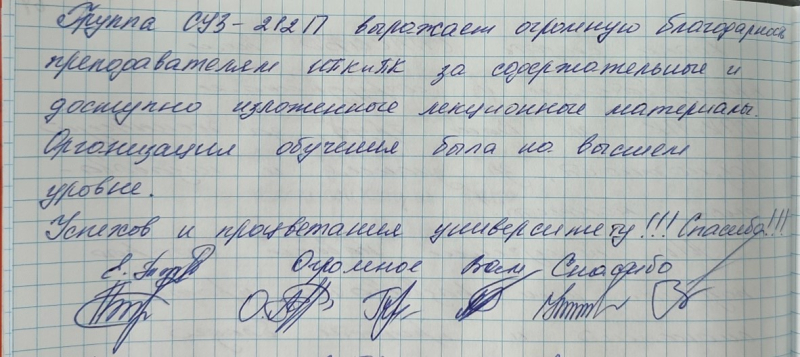 Группа СУЗ-212П выражает огромную благодарность
преподавателям ИПКиПК за содержательные и
доступно изложенные лекционные материалы.
Организация обучения была на высшем
уровне.
Успехов и процветания университету!!! Спасибо!!!
Огромное Вам Спасибо